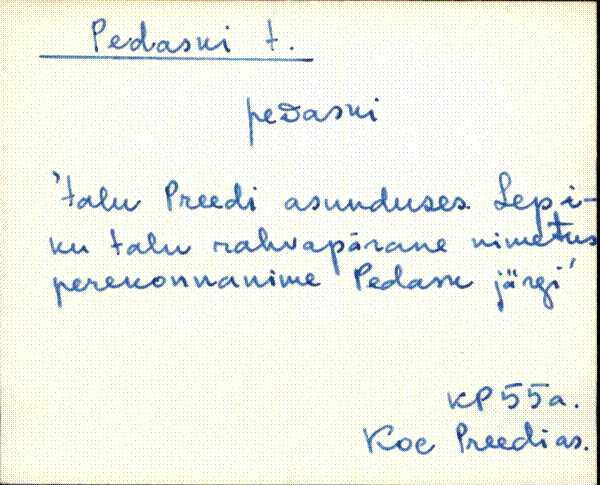 Pedaski t.
peᴅaski
'talu Preedi asunduses. Lepi-
ku talu rahvapärane nimetus
perekonnanime Pedask järgi'
KP 55a.
Koe Preedi as.